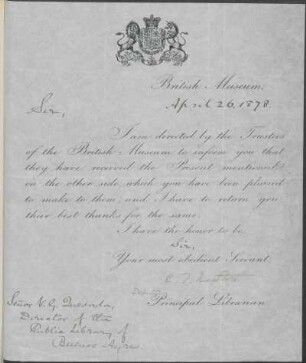 British Museum,
April 26 1878.
Sir,
I am directed by the Trustees
of the British Museum to inform you that
they have received the Present mentioned
on the other side, which you have been pleased
to make to them, and I have to return you
their best thanks for the same.
I have the honor to be,
Sir,
Your most obedient Servant
Principal Librarian
Señor V. G. Quesada,
Director of the
Public Library of
Buenos Ayres